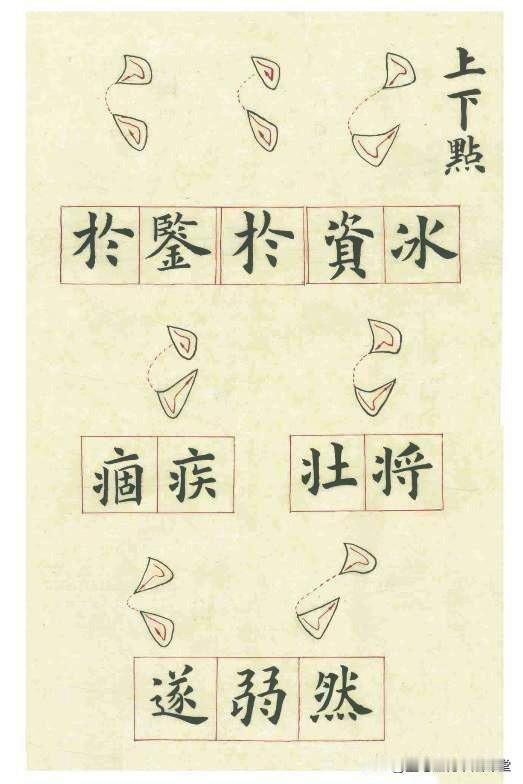 上下點
冰資於鑒於
将壮疾痼
然弱遂